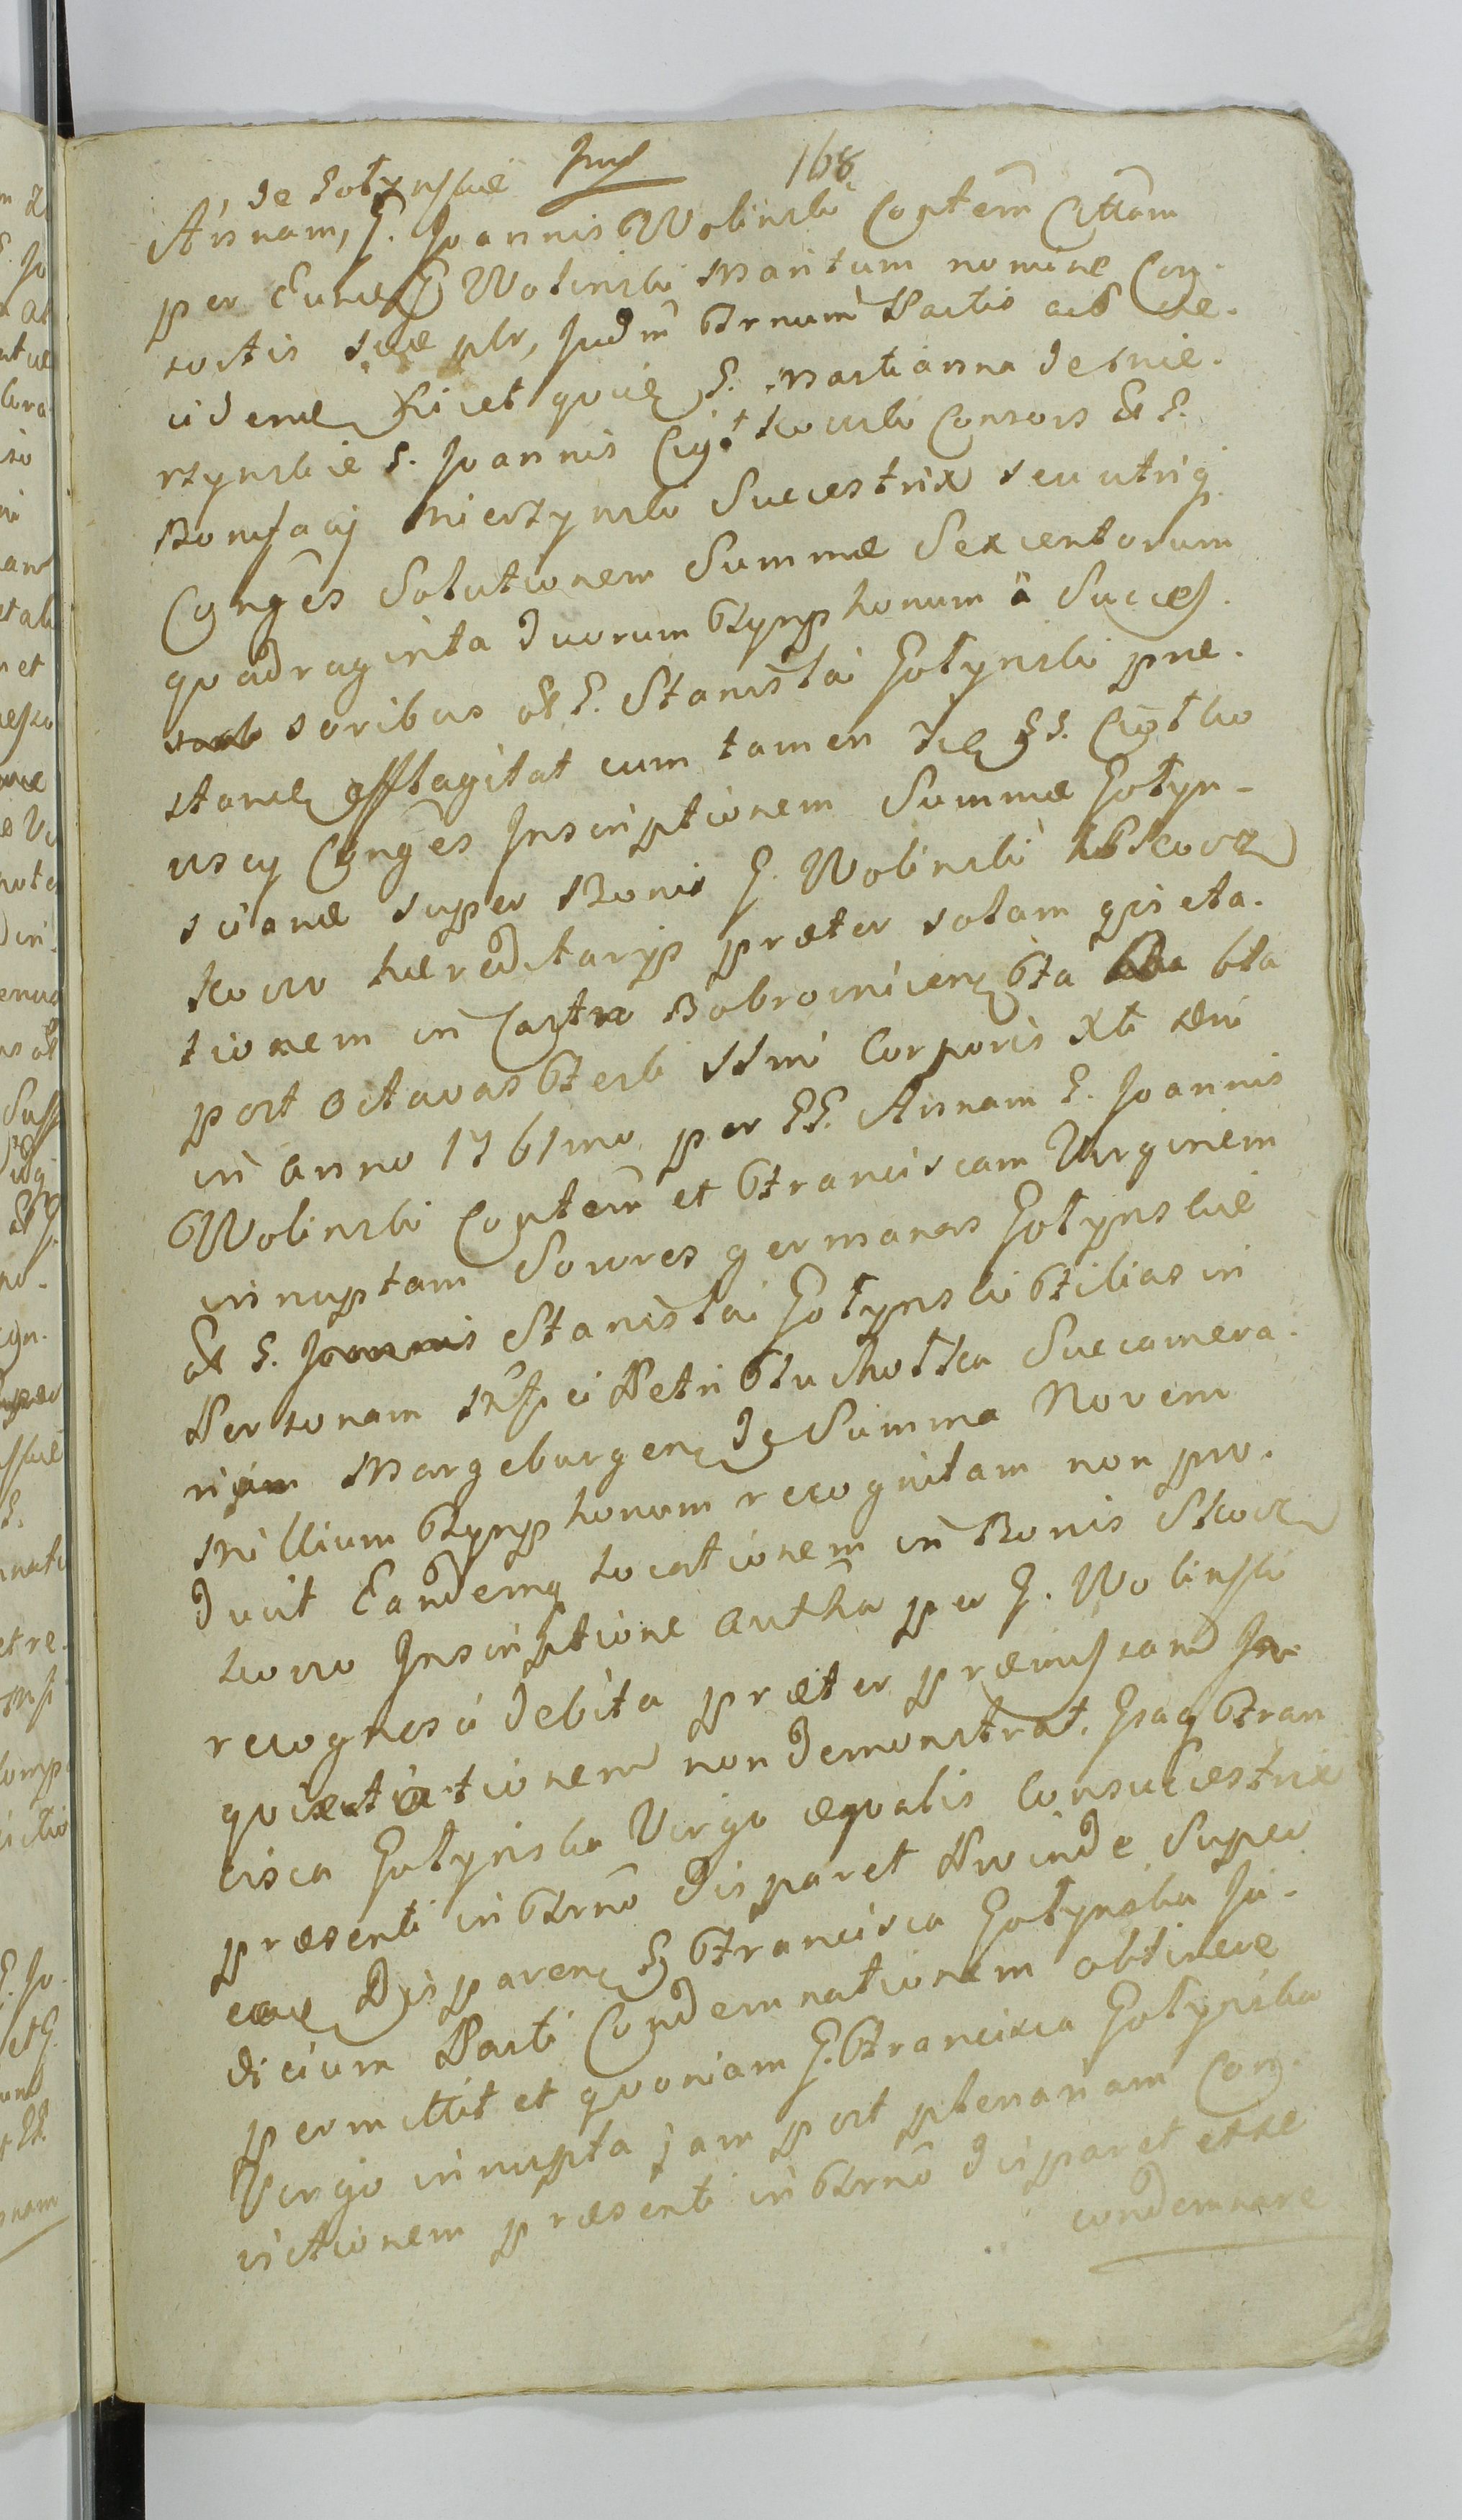 168
de Gołynskie
Annam, G. Joannis Wolinski Contem Cttam
per eund G Wolinski Maritum nomine Con-
sortis suae plr, Judm Frnum Partis act ae-
ciden licet quie G. Marianna de Mie-
rzynskie G. Joannis Ciołkowski Consors & G.
Bonifacij Mierzynski Successtrix seu utrig
Congēs Solutionem Summae Sexcentorum
quadraginta duorum Flynphonum a Succes-
soribus & G. Stanislai Gołynski prae-
stand efflagitat cum tamen Ied GG. Ciołko
uscy Congēs Inscriptionem Summae Gołyn-
scianae super Bonis G. Wolinski Skocz
kowo haereditarijs praeter solam quieta-
tionem in Castro Bobrownicen Fla Fla
post octavas Festi SSmi Corporis Xti
in Anno 1761mo per GG. Annam G. Joannis
Wolinski Contem et Franciscam Virginem
innuptam Sorores germanas Gołynskie
& G. Stanislai Gołynski Filias in
Personam Petri Tuchołka Succamera-
Margeburgen de Summa Novem
Millium Flynphonum recognitam non pro-
ducit Eandemq locationem in Bonis Skocz
kowo Inscriptione autha per G. Wolinski
recognosci debita praeter praemissam
quietationem non demonstrat. Gsaq Fran
cisca Gołynska Virgo aequalis Consuccestrix
praesenti in Frno disparet Proinde super
eand Disparen G Francisca Gołynska Ju-
dicium Parti Condemnationem obtinere
permittit et quoniam G. Francisca Gołynska
Virgo innupta jam post plenariam Con-
victionem praesenti in Frno disparet esse
condemnare